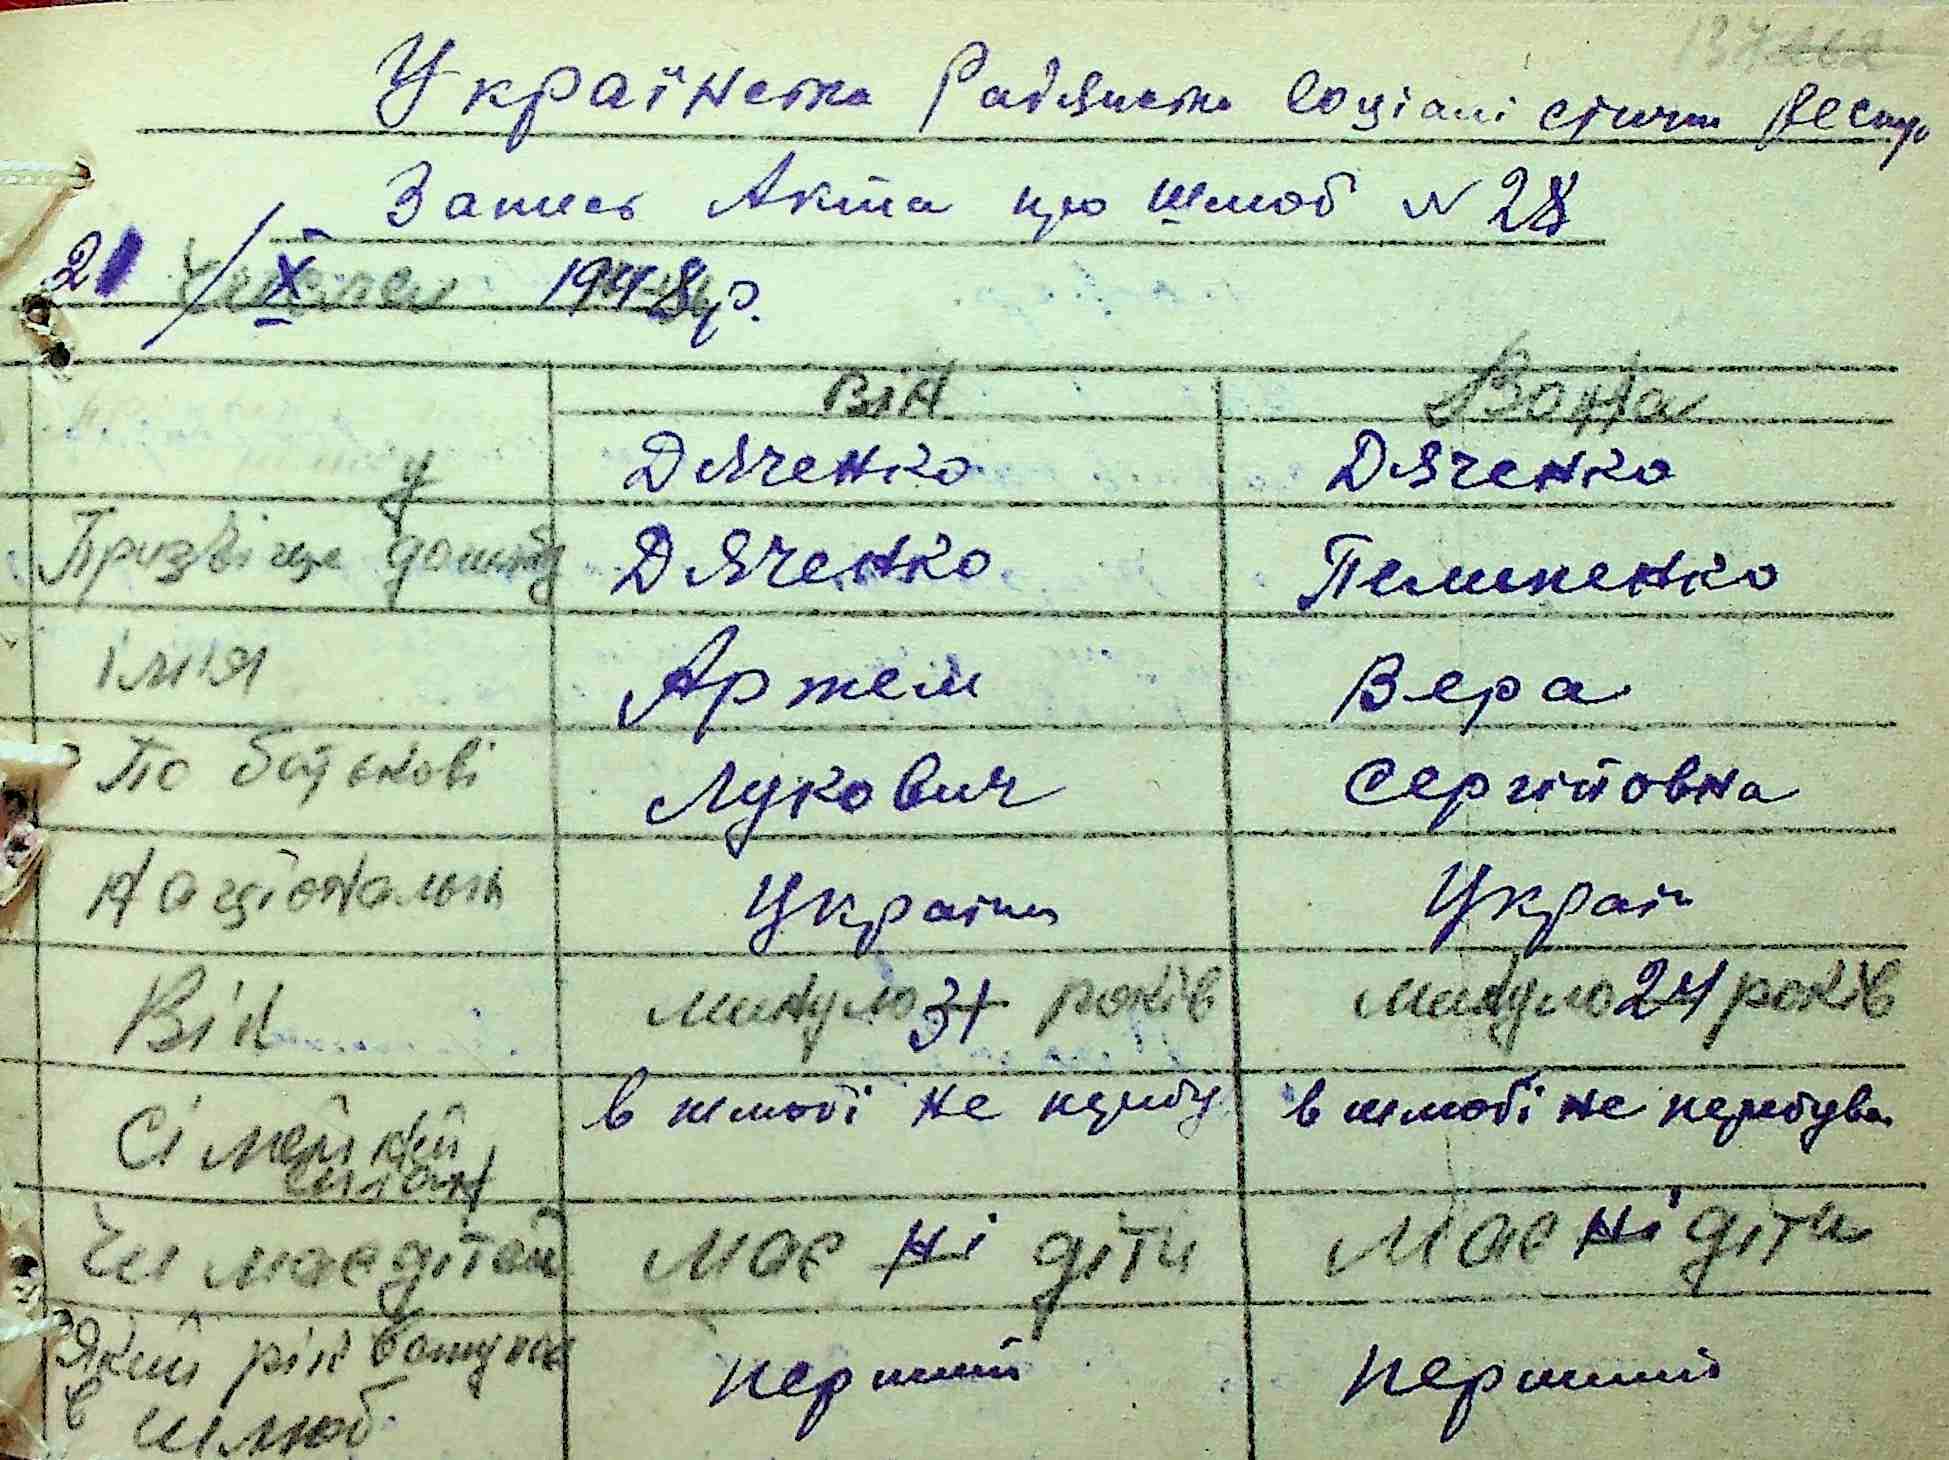 Українська Радянська Соціалістична Респу
Запись Акта про шлюб N 28
21 / X 1948 р.
Він Вона
Дяченко Дяченко
Призвіще дошлюбу Дяченко Пилипенко
імія Артем Вера
По батькові Лукович Сергійовна
Національся Українц Украін
Вік минуло 31 років минуло 24 років
Сімейний стан в шлюбі не перебу в шлюбі не перебува
Чи має дітей має ні діти має ні діти
Який рік вступає перший перший
в шлюб